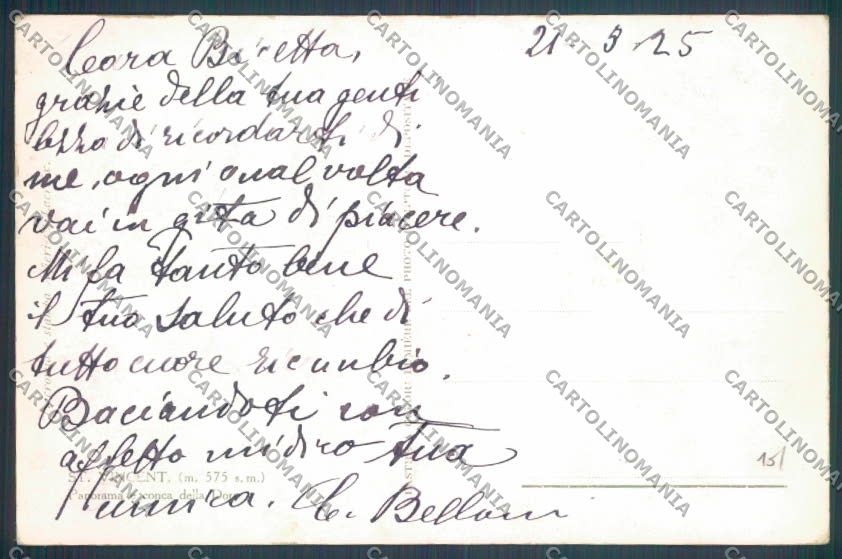 21 · 3 · 25
Ceara Bicetta,
grazie della tua genti
lezza di ricordarti di
me, ogni qual volta
vai in gita di piacere.
Mi fa tanto bene
il tuo saluto che di
tutto cuore ricambio.
Baciandoti con
affetto mi diro tua
amica. C. Belloni
ST. VINCENT, (m. 575 s. m.)
Panorama e conca della Dora
15/
CARTOLINOMANIA